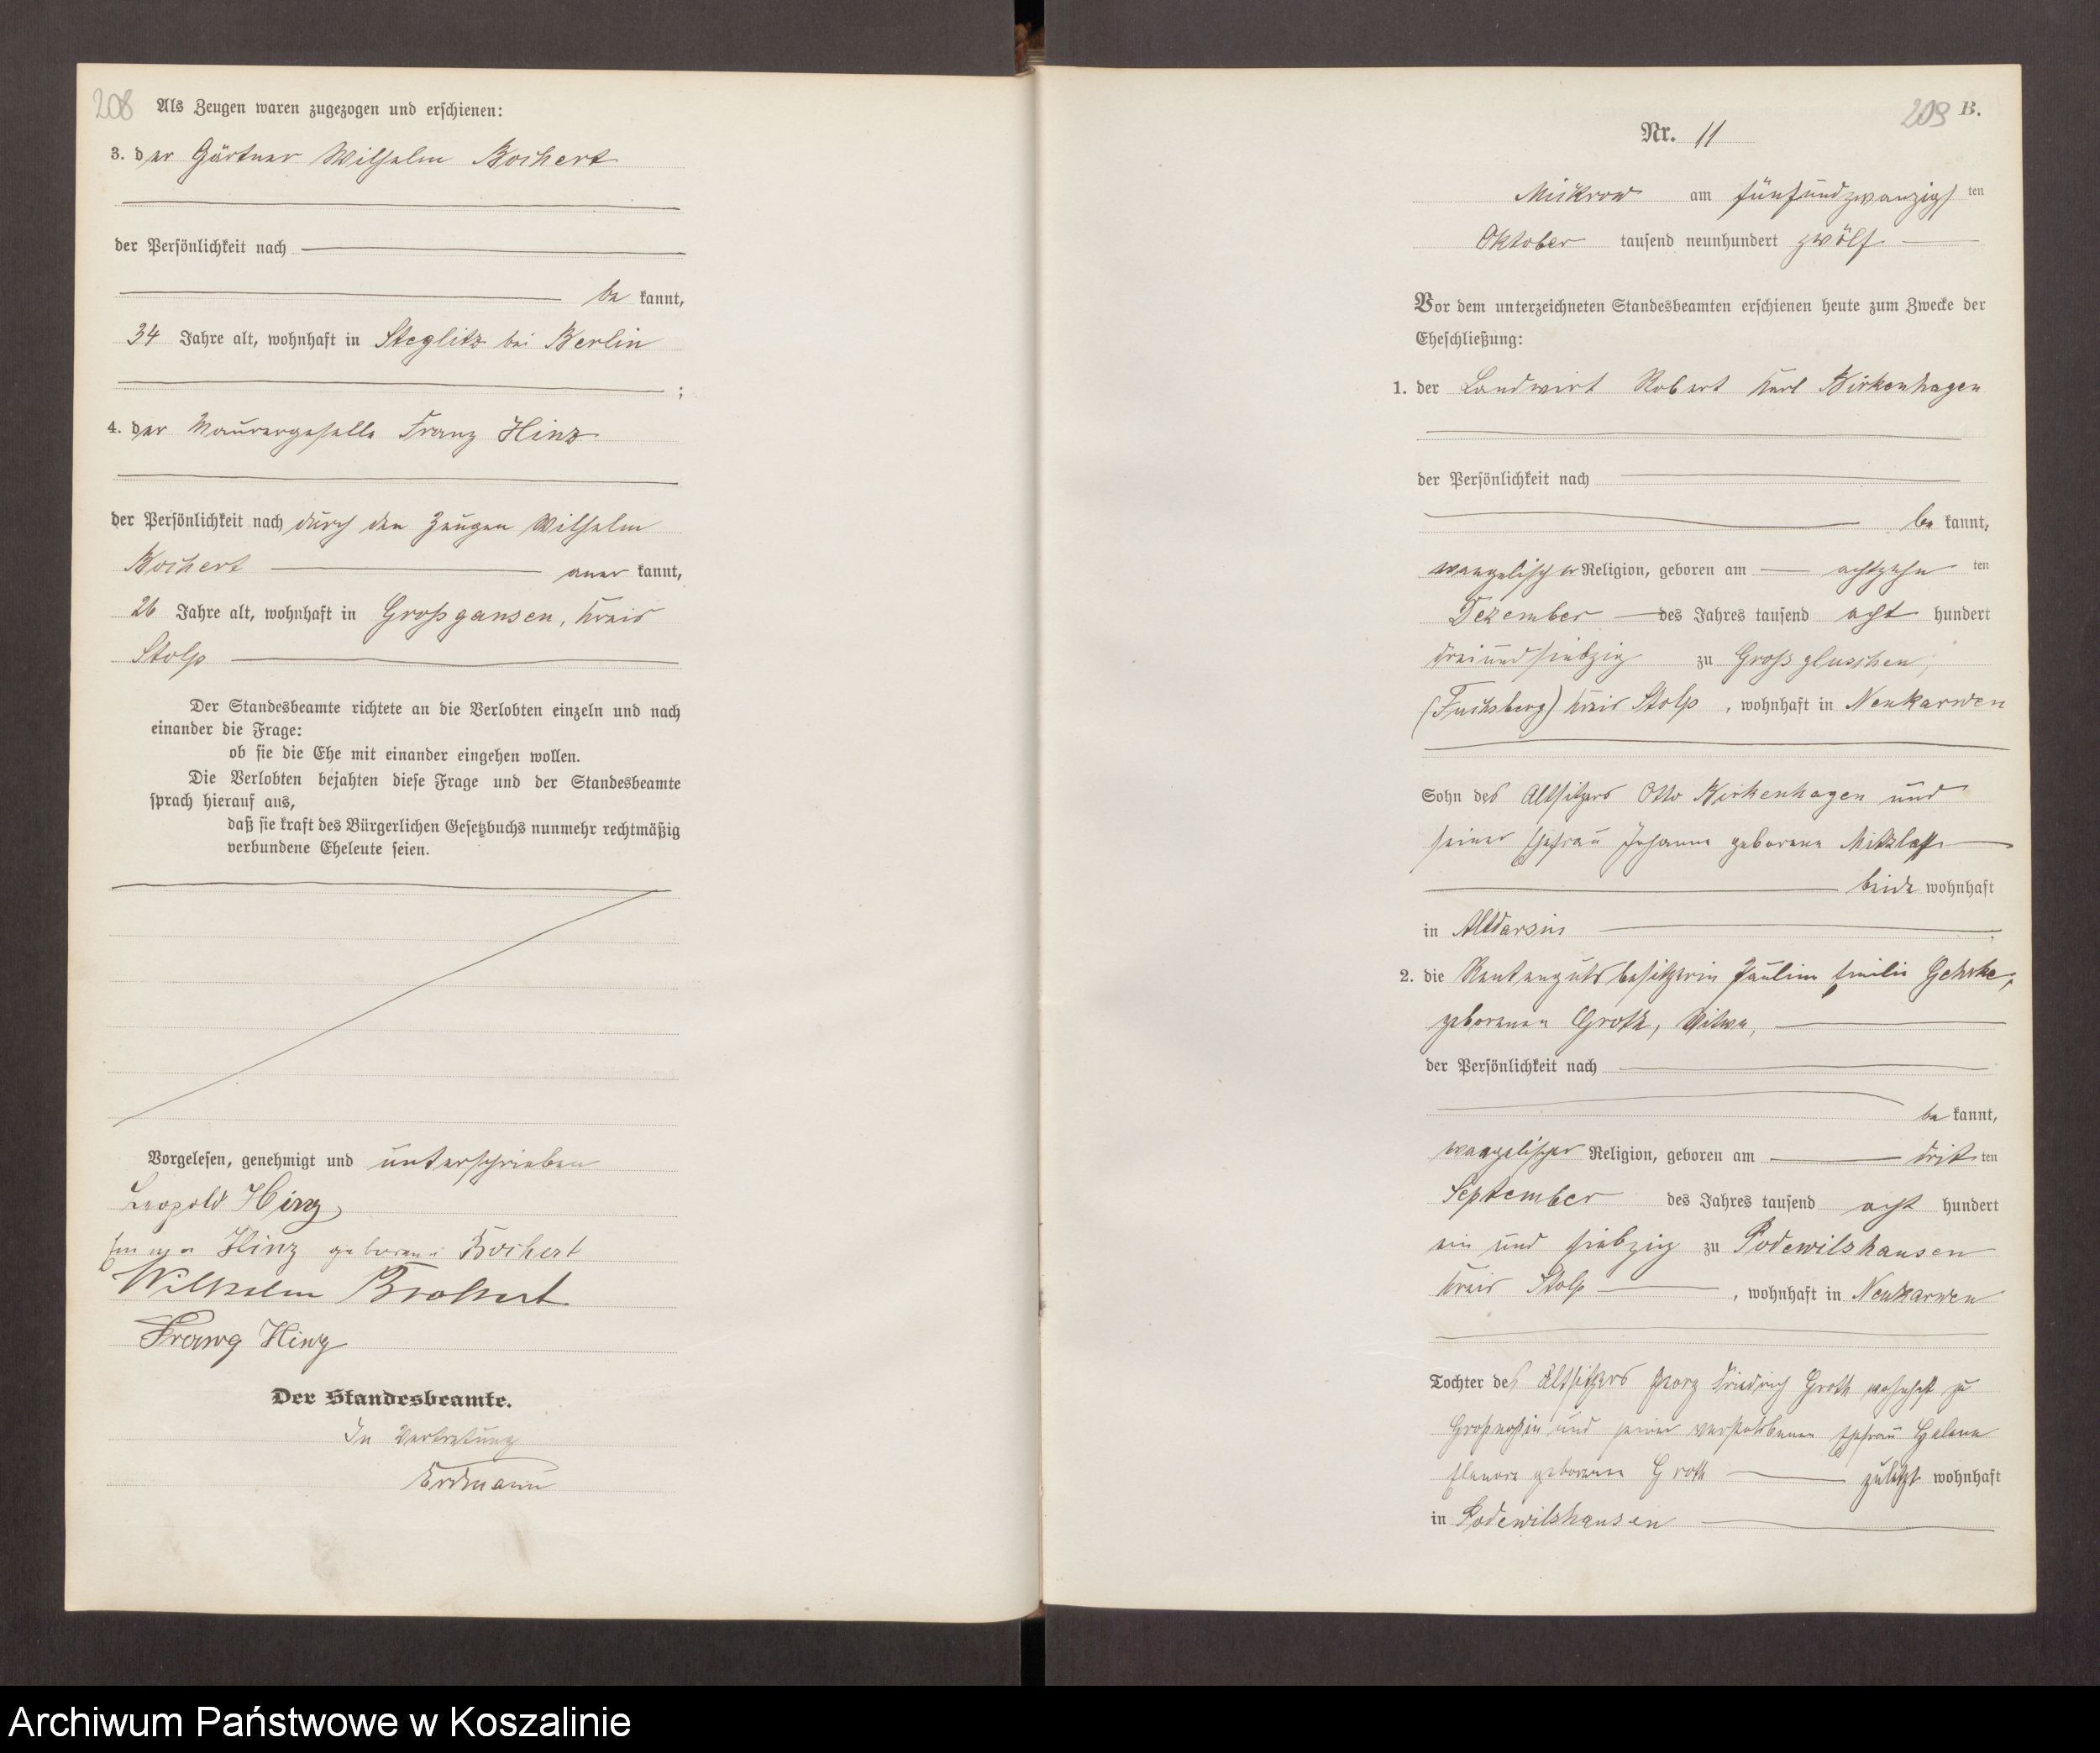 208
Als Zeugen waren zugezogen und erschienen:
3. der Gärtner Wilhelm Borchert
der Persönlichkeit nach
bekannt,
34 Jahre alt, wohnhaft in Steglitz bei Berlin
;
4. der Maurergeselle Franz Hinz
der Persönlichkeit nach durch den Zeugen Wilhelm
Borchert anerkannt,
26 Jahre alt, wohnhaft in Großgansen, Kreis
Stolp
Der Standesbeamte richtete an die Verlobten einzeln und nach
einander die Frage:
ob sie die Ehe mit einander eingehen wollen.
Die Verlobten bejahten diese Frage und der Standesbeamte
sprach hierauf aus,
daß sie kraft des Bürgerlichen Gesetzbuchs nunmehr rechtmäßig
verbundene Eheleute seien.
Vorgelesen, genehmigt und unterschrieben
Leopold Hinz
Hinz geborene Borchert
Wilhelm
Franz Hinz
Der Standesbeamte.
In Vertretung
Erdmann
209 B.
Nr. 11
Mickrow am fünfundzwanzigsten
Oktober tausend neunhundert zwölf
Vor dem unterzeichneten Standesbeamten erschienen heute zum Zwecke der
Eheschließung:
1. der Landwirt Robert Karl Birkenhagen
der Persönlichkeit nach
bekannt,
evangelischer Religion, geboren am achtzehnten
Dezember des Jahres tausend achthundert
dreiundsiebzig zu Großgluschen,
(Fuchsberg) Kreis Stolp, wohnhaft in Neukarwen
Sohn des Altsitzers Otto Birkenhagen und
seiner Ehefrau Johanna geborene Mitzlaff
beide wohnhaft
in Altdarsin
2. die Rentengutsbesitzerin Pauline Emilie Gehrke,
geborenen Groth, Witwe,
der Persönlichkeit nach
bekannt,
evangelischer Religion, geboren am dritten
September des Jahres tausend achthundert
ein und siebzig zu Podewilshausen
Kreis Stolp, wohnhaft in Neukarwen
Tochter des Altsitzers Georg Friedrich Groth wohnhaft zu
Großnossin und seiner verstorbenen Ehefrau Helene
Eleonore geborenen Groth zuletzt wohnhaft
in Podewilshausen
Archiwum Państwowe w Koszalinie